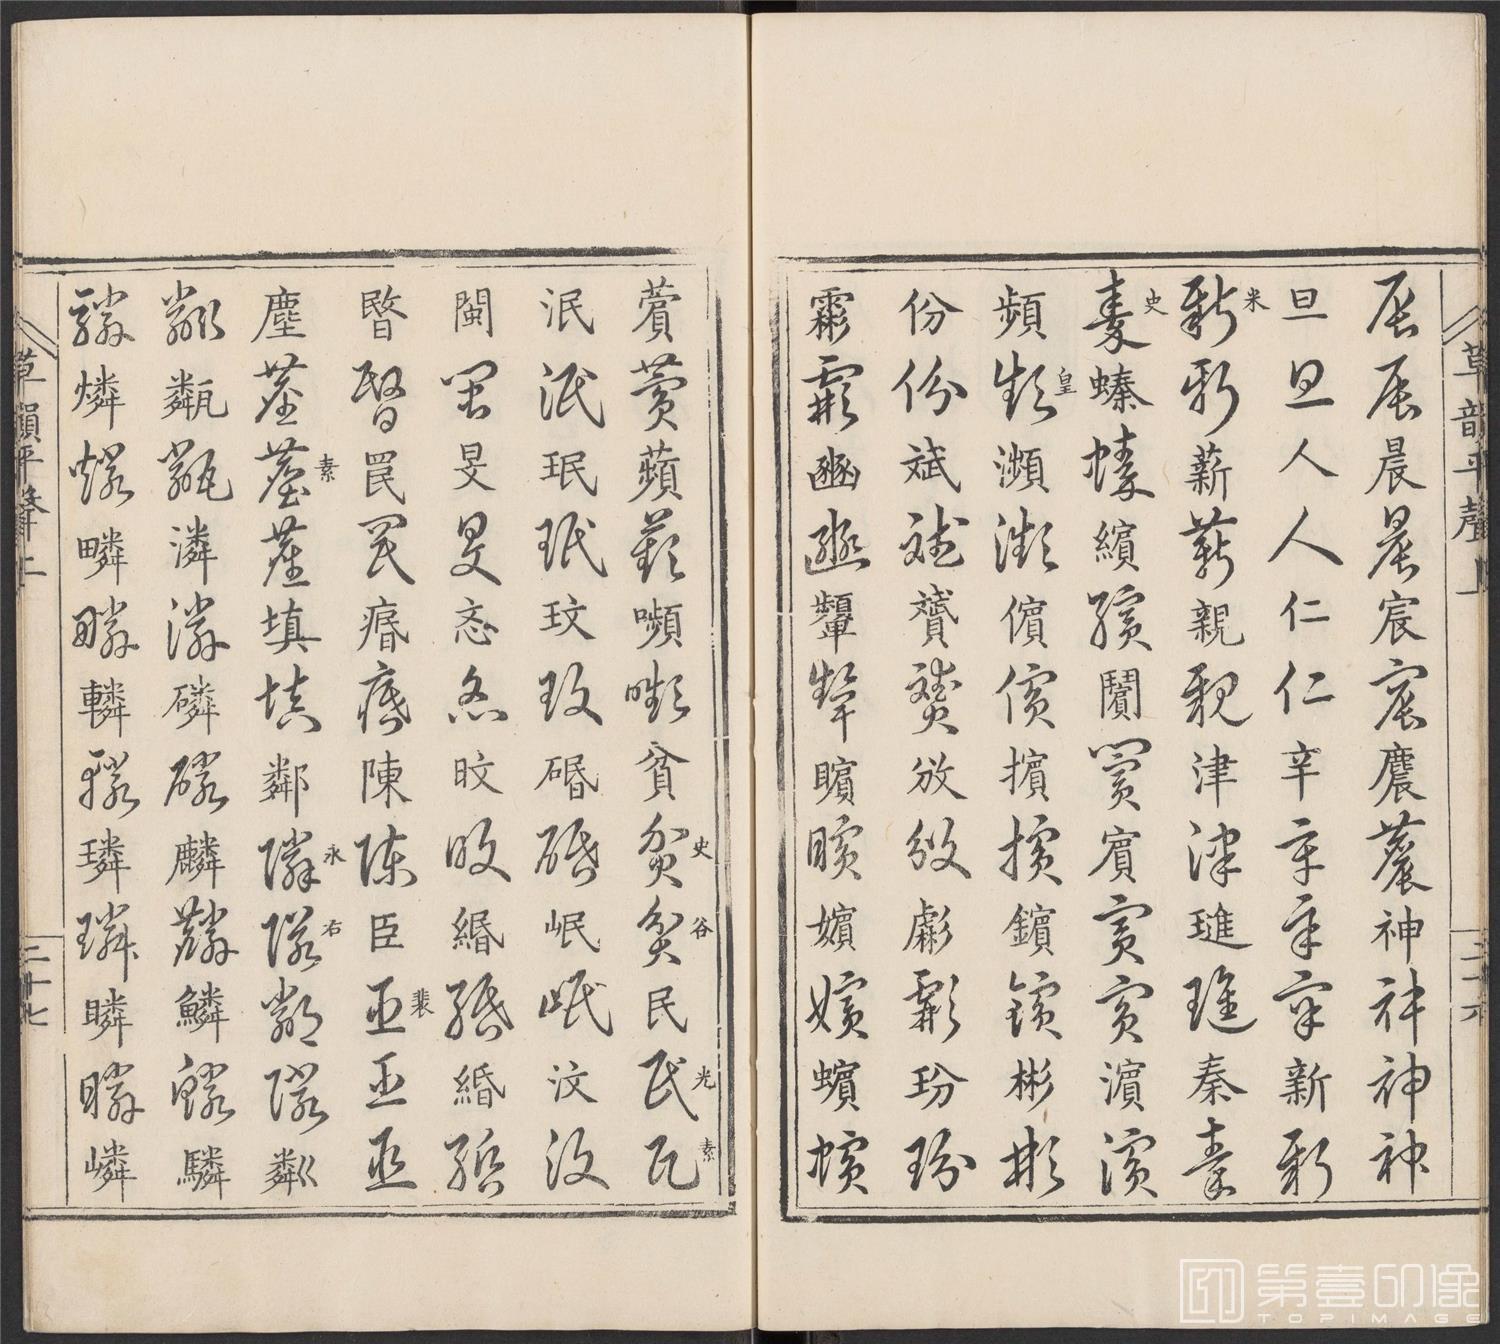 辰辰晨晨宸宸麎麎神神神神
旦旦人人人仁仁辛辛辛辛新新
新米新薪薪親親津津璡璡秦秦
秦史螓螓繽繽闠闠賓賓賓濱濱
頻頻皇瀕瀕儐儐擯擯鑌鑌彬彬
份份斌斌贇贇攽攽虨虨玢玢
霦霦豳豳顰顰矉矉嬪嬪蠙蠙
薲薲蘋蘋嚬嚬貧貧史貧谷民民光民素
泯泯珉珉玟玟碈碈岷岷汶汶
閩閩旻旻忞忞旼旼緡緡緍緍
暋暋罠罠痻痻陳陳臣臣裴臣臣
塵塵塵素塵填填鄰鄰永鄰右鄰鄰粼
粼甐甐潾潾磷磷麟麟鱗鱗驎
驎燐燐疄疄轔轔璘璘瞵瞵嶙
草韻平聲上
二十六
草韻平聲上
二十七
第壹印像
TOPIMAGE